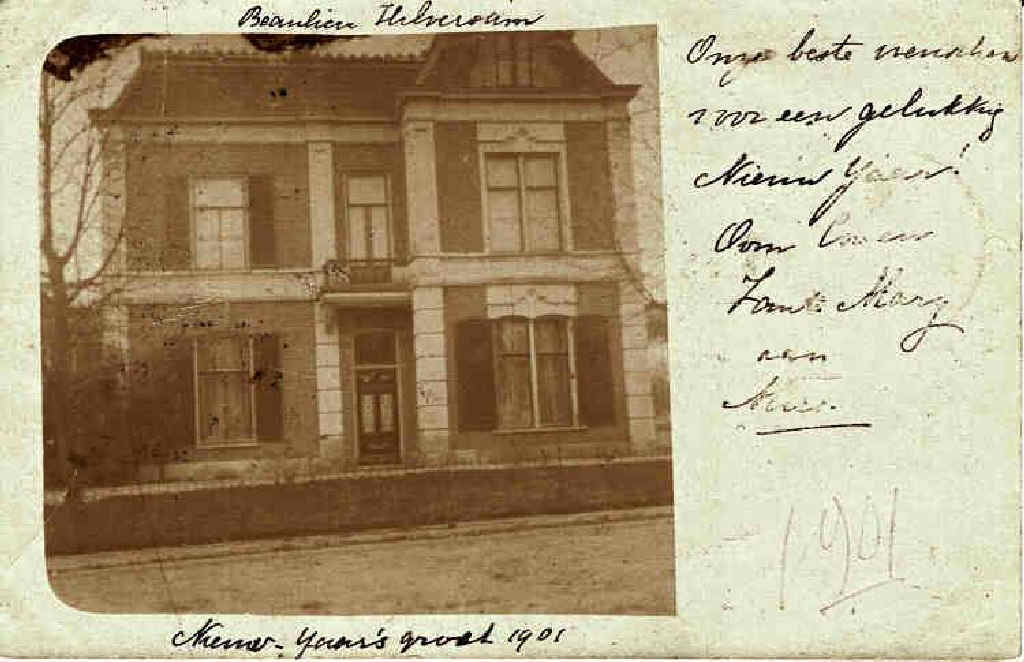 Beaulieu Hilversum
Onze beste wenschen
voor een gelukkig
Nieuw Yaar!
Oom
Tante Mary
aan
Nieuw-Yaar's groet 1901
1901